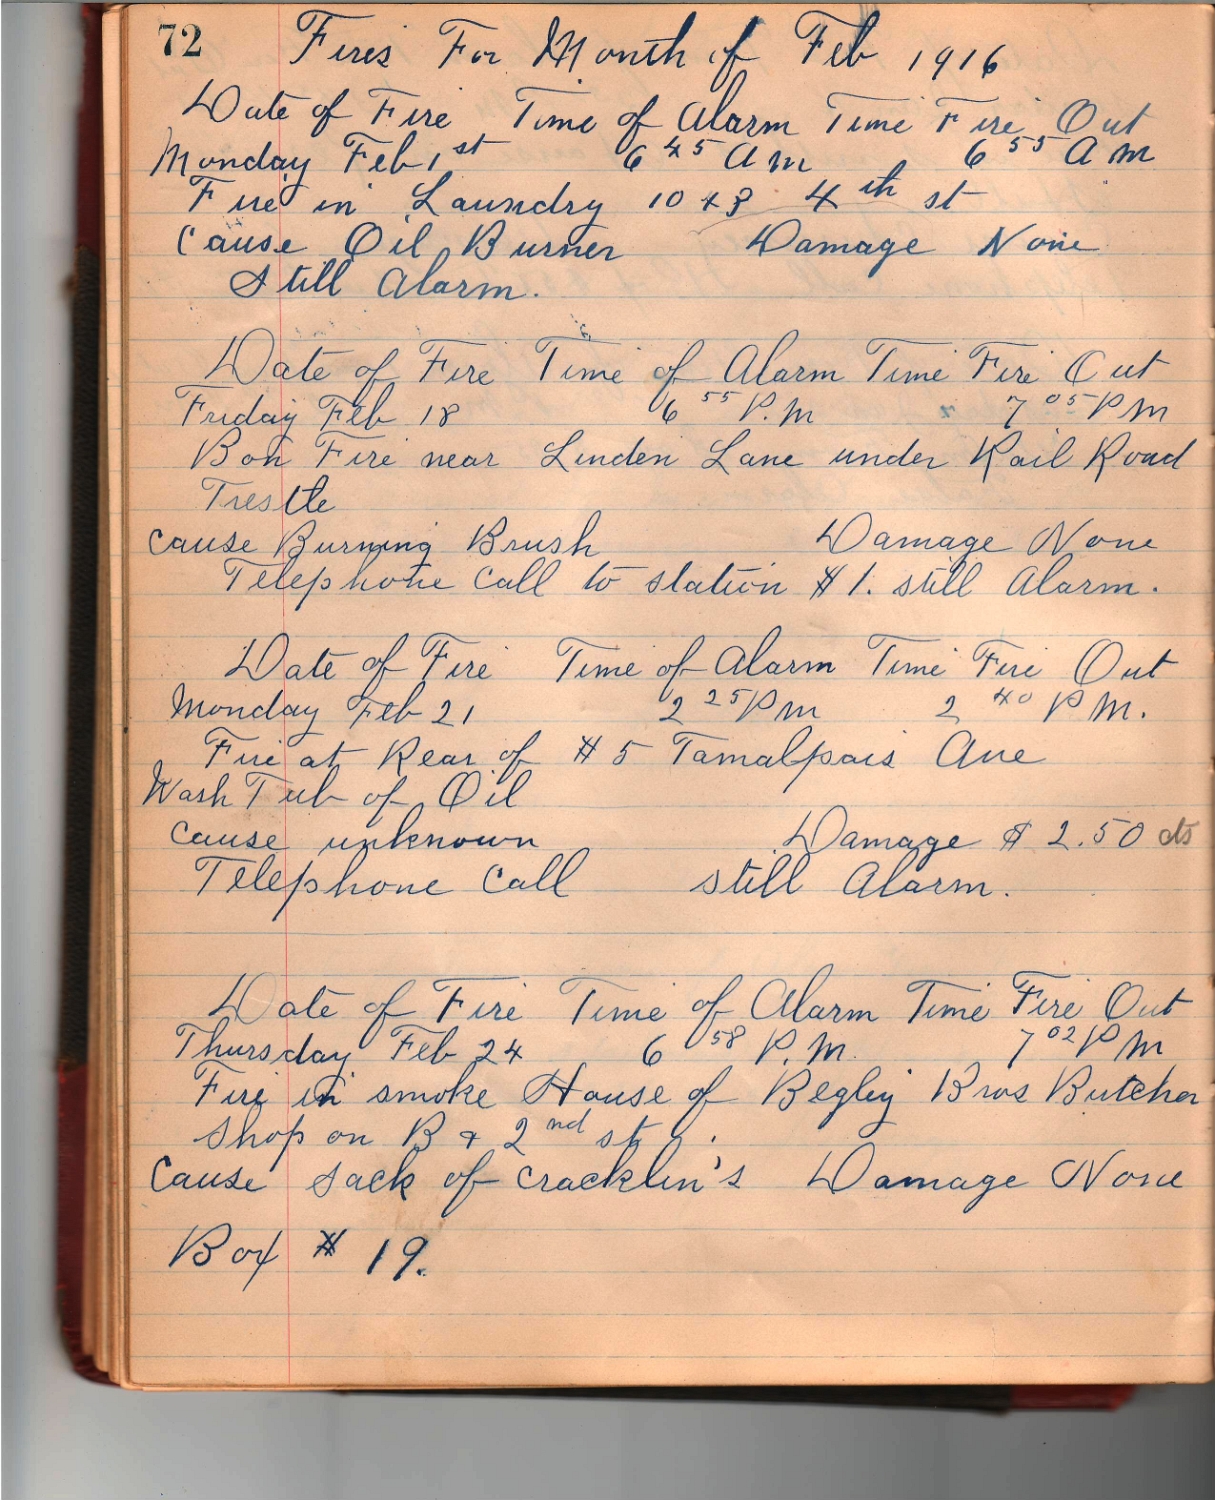 72 Fires For Month of Feb 1916
Date of Fire Time of Alarm Time Fire Out
Monday Feb 1st 6 45 A M 6 55 A M
Fire in Laundry 4th st
Cause Oil Burner Damage None
Still Alarm.
Date of Fire Time of Alarm Time Fire Out
Friday Feb 18 6 55 P.M 7 05 P M
Bon Fire near Linden Lane under Rail Road
Trestle
cause Burning Brush Damage None
Telephone Call to station # 1. still Alarm.
Date of Fire Time of Alarm Time Fire Out
Monday Feb 21 2 25 P m 2 40 P M.
Fire at Rear of # 5 Tamalpais Ave
Wash Tub of Oil
Cause unknown Damage $ 2.50 cts
Telephone Call still Alarm.
Date of Fire Time of Alarm Time Fire Out
Thursday Feb 24 6 58 P.M. 7 02 P M
Fire in smoke House of Begley Bros Butcher
Shop on B & 2nd st.
Cause sack of cracklin's Damage None
Box # 19.